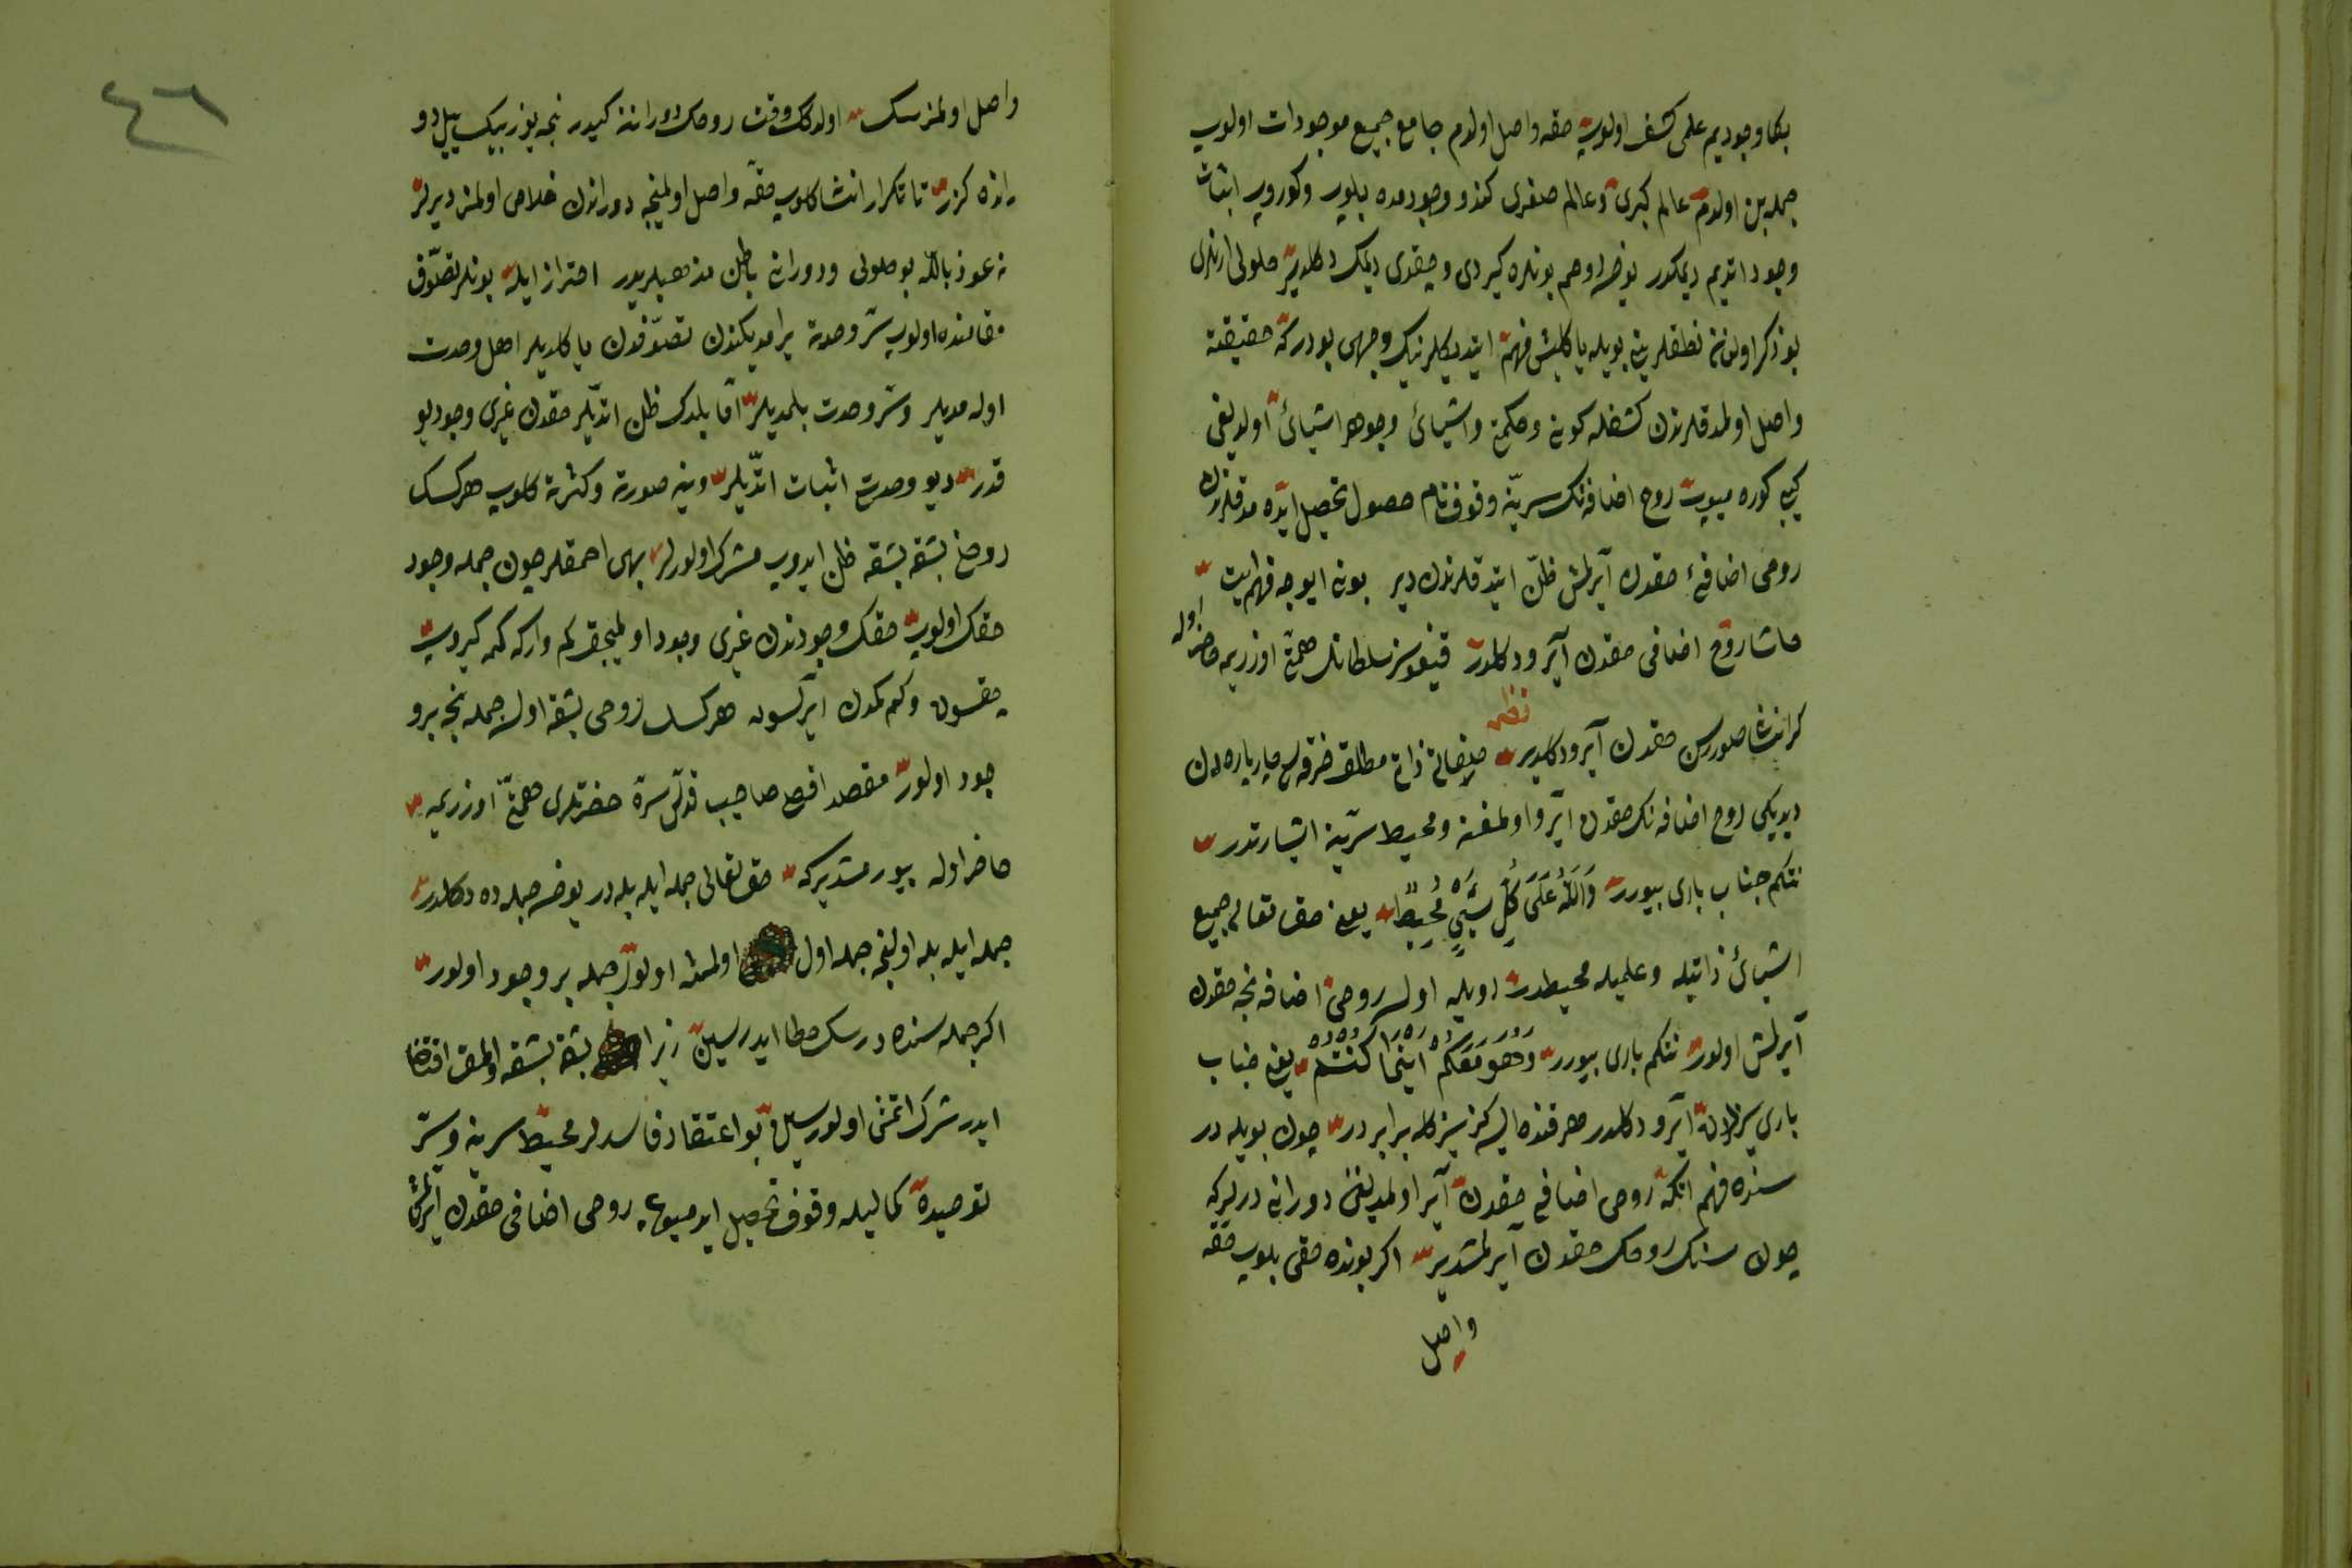 بكا وجوديم علمى كشف اولوب حقه واصل اولدم جامع جميع موجودات اولوب
جمله بن اولدم عالم كبرى و عالم صغرى كندو وجودمده بلوب و كوروب اثبات
وجود اتديم ديمكدر يوخسه اوهم بونلره كيردى وچقدى ديمك دكلدير حلولى ارنلرى
بو ذكر اولنان نطقلرينى بويله ياكلش فهم ايتديكلرينك وجهى بودركه حقيقته
واصل اولمدقلرندن كشفله كونى وحكمتى واشيائى وجوهر اشيائى اولديغى
كيبى كوره ميوب روح اضافه نك سرينه وقوف تام حصول تحصيل ايده مدقلرندن
روحى اضافئ حقدن آيرلمش ظن ايتدقلرندن دير بونى ايوجه فهم ايت
حاشا روح اضافى حقدن آيرو دكلدر قيغوسز سلطانك همتى اوزريمه حاضر اوله
كر انسان صوررسن حقدن آيرو دكلدير نظم صفاتى ذات مطلق خرقه سى چار پاره دن
ديديكى روح اضافه نك حقدن آيرو اولمغنه و محيط سرينه اشارتدر
نتكم جناب بارى بيورر وَاللهُ عَلَى كُلِّ شَيْءٍ مُحِيطٌ يعنى حق تعالى جميع
اشيائى ذاتيله وعلميله محيطدر اويله اولسه روحى اضافه نجه حقدن
آيرلمش اولور نتكم بارى بيورر وَهُوَ مَعَكُمْ اَيْنَمَا كُنْتُمْ يعنى جناب
بارى سزلردن آيرو دكلدر هر قنده ايسه كز سزكله برابردر چون بويله در
سنده فهم ايتكه روحى اضافى حقدن آير اولمديغنى دورانى ديرلركه
چون سنك روحك حقدن آيرلمشدير اكر بونده حقى بلوب حقه
واصل
٤٦
واصل اولمزسك اولدكك وقت روحك دورانه كيدر نجه يوز بيك ييل دو
رانده كزر تا تكرار انسانه كلوب حقه واصل اولمينجه دوراندن خلاص اولمز ديرلر
نعوذ بالله بو حلولى ودورانى باطل مذهبلريدر احتراز ايله بونلر تصوف
مقامنده اولوب سر وحدته يرامديكندن تصوفدن ياكلديلر اهل وحدت
اوله مديلر و سر وحدت بلمديلر اما بلدك ظن اتديلر حقدن غيرى وجود يو
قدر ديو وحدت اثبات اتديلر وينه صورته وكثرته كلوب هر كسك
روحنى بشقه بشقه ظن ايدوب مشرك اولورلر بهى احمقلر چون جمله وجود
حقك اولوب حقك وجودندن غيرى وجود اوليجق كم واركه كمه كيروب
چقسون وكم كمدن ايرلسون هر كسك روحى بشقه اولسه جمله نجه بر و
جود اولور مقصد اقصى صاحبى قدس سره حضرتلرى همتى اوزريمه
حاضر اوله بيورمشدير كه حق تعالى جمله ايله بله در يوخسه جمله ده دكلدر
جمله ايله بله اولنجه جمله اول اولمش اولور جمله بر وجود اولور
اكر جمله سنده درسك خطا ايدرسين زيرا بشقه بشقه اولمق اقتضا
ايدر شرك اتمش اولورسين بو اعتقاد فاسدلر محيط سرينه و سر
توحيده كماليله وقوف تحصيل ايدميوب روحى اضافى حقدن آيرلمش